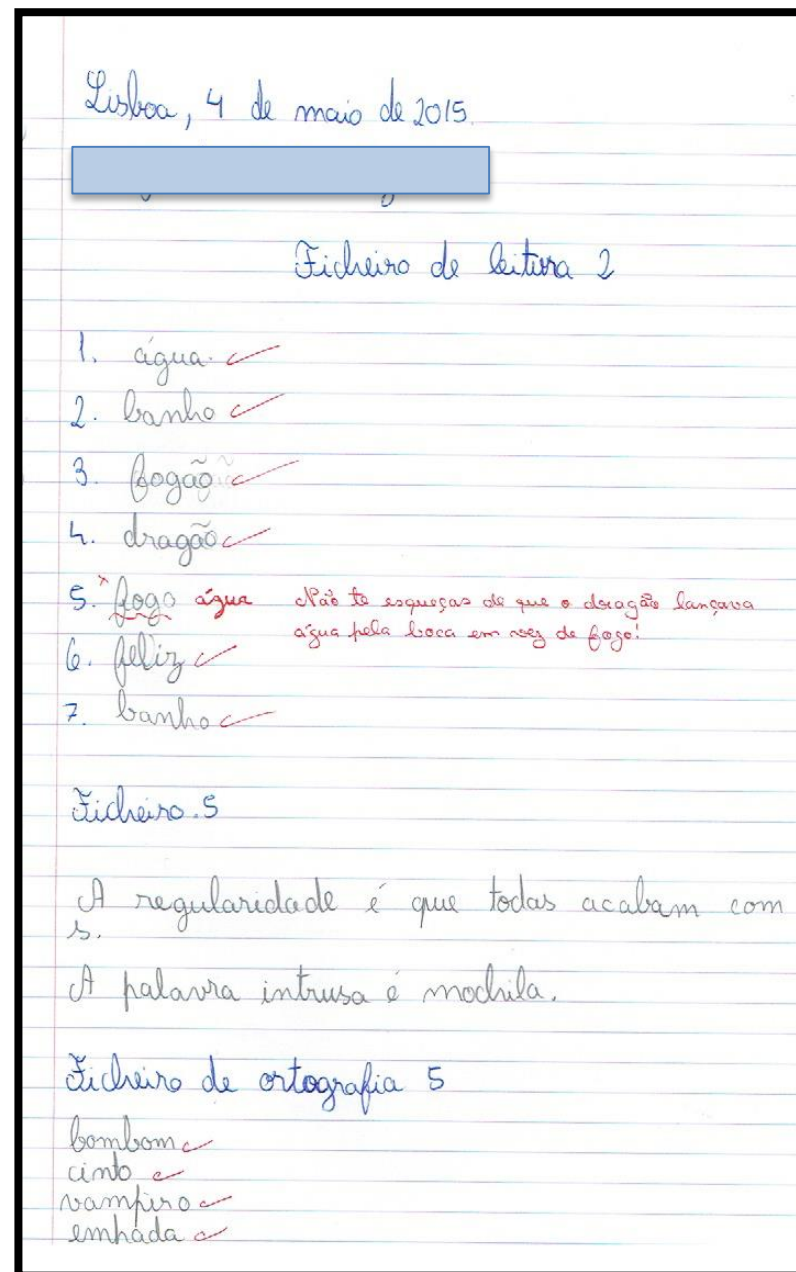 Lisboa, 4 de maio de 2015.
Ficheiro de leitura 2
1. água.
2. banho
3. fogão
4. dragão
5. fogo água Não te esqueças de que o dragão lançava
água pela boca em vez de fogo!
6. feliz
7. banho
Ficheiro.5
A regularidade é que todas acabam com
s.
A palavra intrusa é mochila.
Ficheiro de ortografia 5
bombom
cinto
vampiro
empada